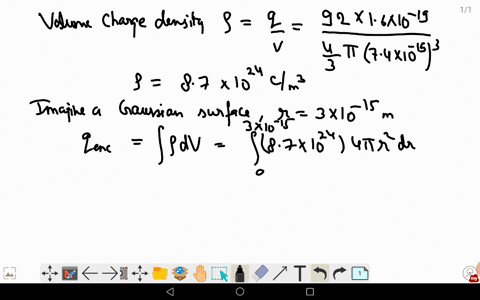 1/1
Volume charge density ρ = q/V = 92 × 1.6×10^-19 / (4/3 π (7.4×10^-15)^3)
ρ = 8.7 × 10^24 C/m^3
Imagine a Gaussian surface, r = 3×10^-15 m
q_enc = ∫ρdV = ∫_0^{3×10^-15} (8.7×10^24) 4πr^2 dr
T
1